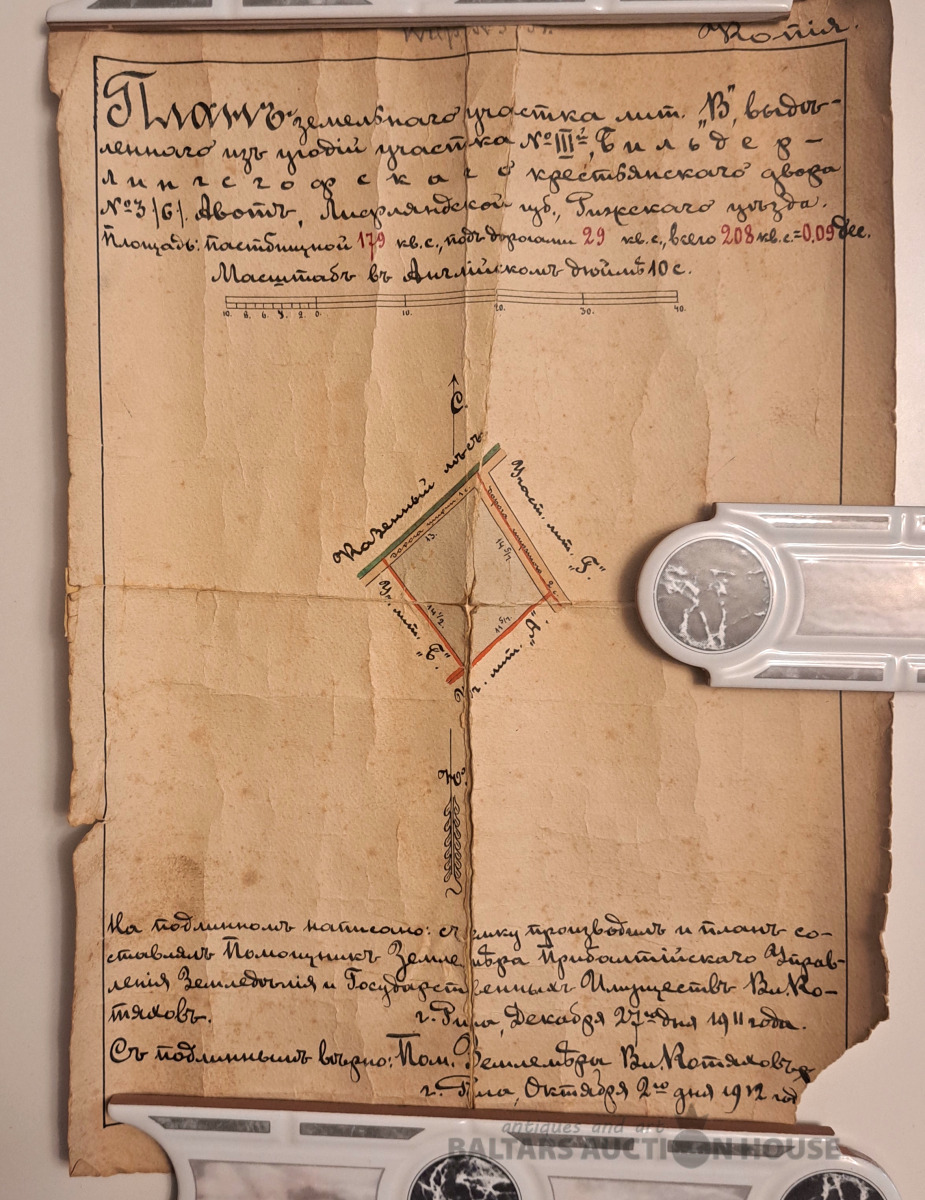 Копія.
Планъ земельнаго участка лит. „В", выдѣ-
леннаго изъ угодій участка № III², Бильдер-
лингсгофскаго крестьянскаго двора
№ 3/6/. Авотъ, Лифляндской губ., Рижскаго уѣзда.
Площадь: пастбищной 179 кв.с., подъ дорогами 29 кв.с., всего 208 кв.с.=0,09 дес.
Масштабъ въ Англійскомъ дюймѣ 10 с.
10. 8. 6. 4. 2. 0. 10. 20. 30. 40.
С.
Казенный лѣсъ
дорога шир. 1с.
13.
дорога шириною 2с.
14 5/7.
Участ. лит. „Г".
Уч. лит. „Б"
14 1/2.
11 5/7.
Уч. лит. „А".
Ю.
На подлинномъ написано: съемку производилъ и планъ со-
ставлялъ Помощникъ Землемѣра Прибалтійскаго Управ-
ленія Земледѣлія и Государственныхъ Имуществъ Вл. Ко-
тяховъ.
г. Рига, Декабря 27го дня 1911 года.
Съ подлиннымъ вѣрно: Пом. Землемѣра Вл. Котяховъ
г. Рига, Октября 2го дня 1912 год
antiques and art
BALTARS AUCTION HOUSE